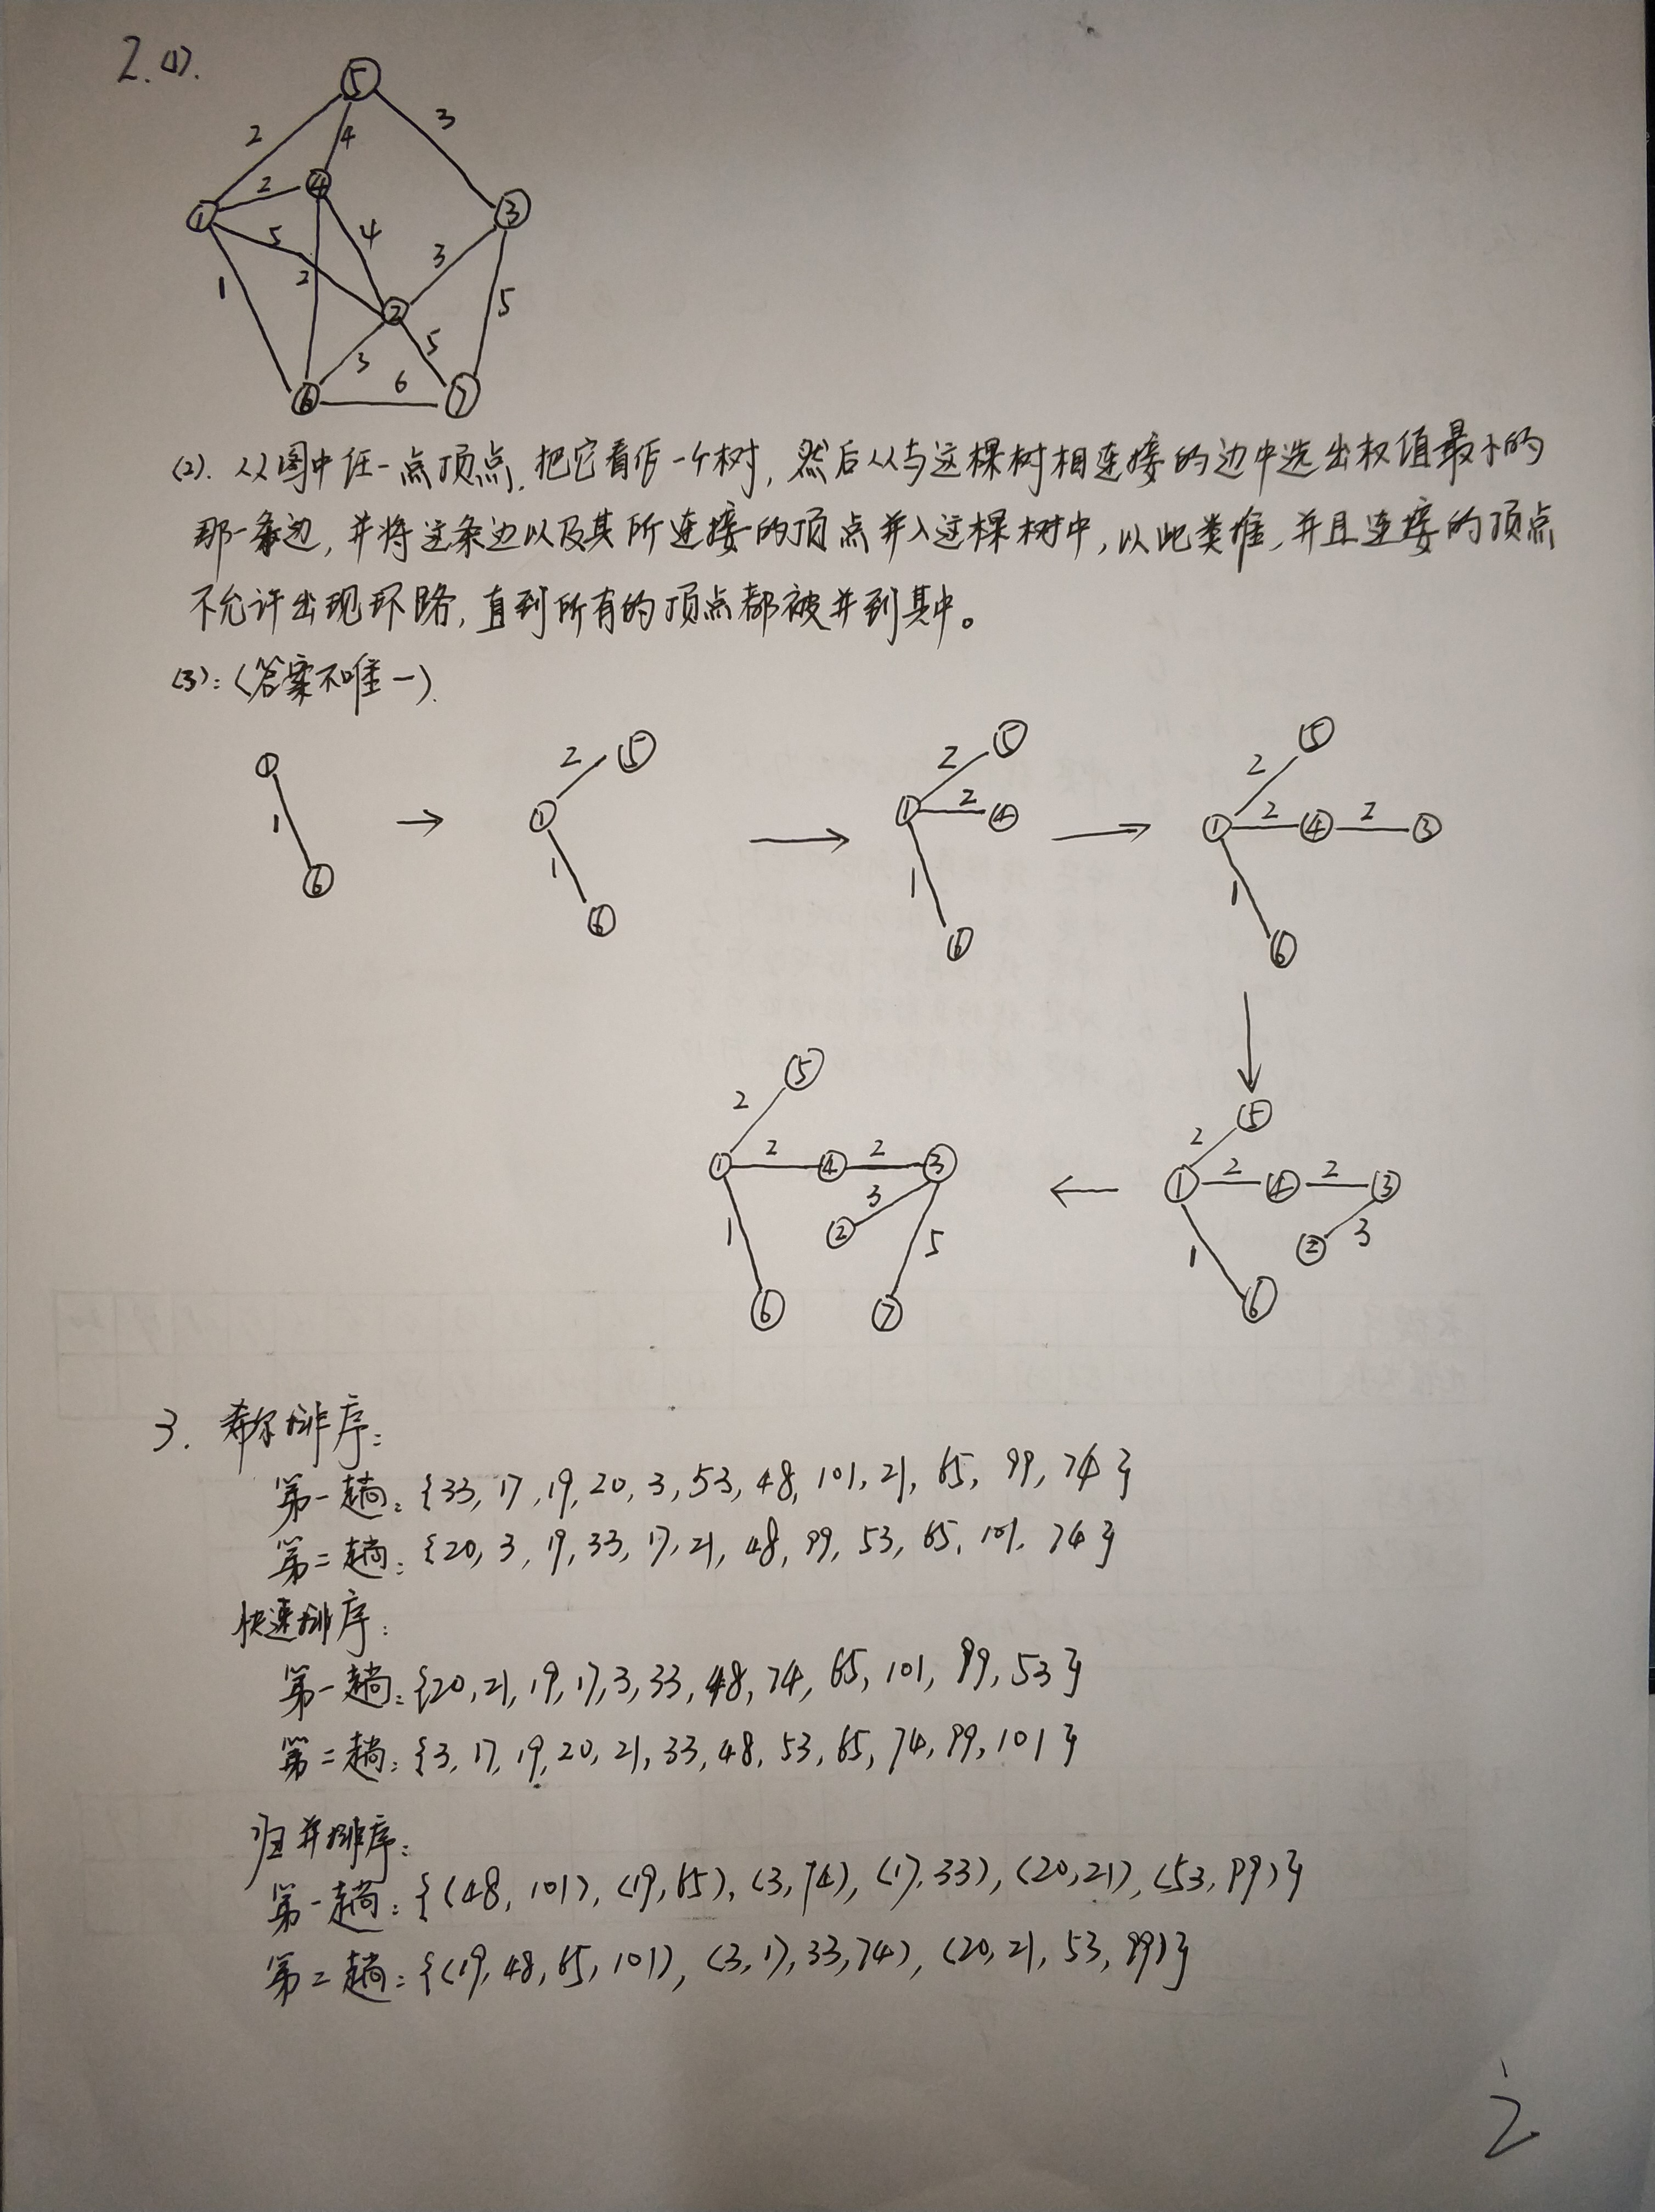 2.(1).
⑤
2
4
3
2
④
①
③
5
4
3
1
2
②
5
3
5
6
⑥
⑦
(2). 从图中任一点顶点,把它看作一个树,然后从与这棵树相连接的边中选出权值最小的
那一条边,并将这条边以及其所连接的顶点并入这棵树中,以此类推,并且连接的顶点
不允许出现环路,直到所有的顶点都被并到其中。
(3):(答案不唯一).
① 1 ⑥
→
① 2 ⑤ 1 ⑥
→
① 2 ⑤ 2 ④ 1 ⑥
→
① 2 ⑤ 2 ④ 2 ③ 1 ⑥
↓
① 2 ⑤ 2 ④ 2 ③ 3 ② 1 ⑥
←
① 2 ⑤ 2 ④ 2 ③ 3 ② 5 ⑦ 1 ⑥
3. 希尔排序:
第一趟:{33, 17, 19, 20, 3, 53, 48, 101, 21, 65, 99, 74}
第二趟:{20, 3, 19, 33, 17, 21, 48, 99, 53, 65, 101, 74}
快速排序:
第一趟:{20, 21, 19, 17, 3, 33, 48, 74, 65, 101, 99, 53}
第二趟:{3, 17, 19, 20, 21, 33, 48, 53, 65, 74, 99, 101}
归并排序:
第一趟:{(48, 101), (19, 65), (3, 74), (17, 33), (20, 21), (53, 99)}
第二趟:{(19, 48, 65, 101), (3, 17, 33, 74), (20, 21, 53, 99)}
2